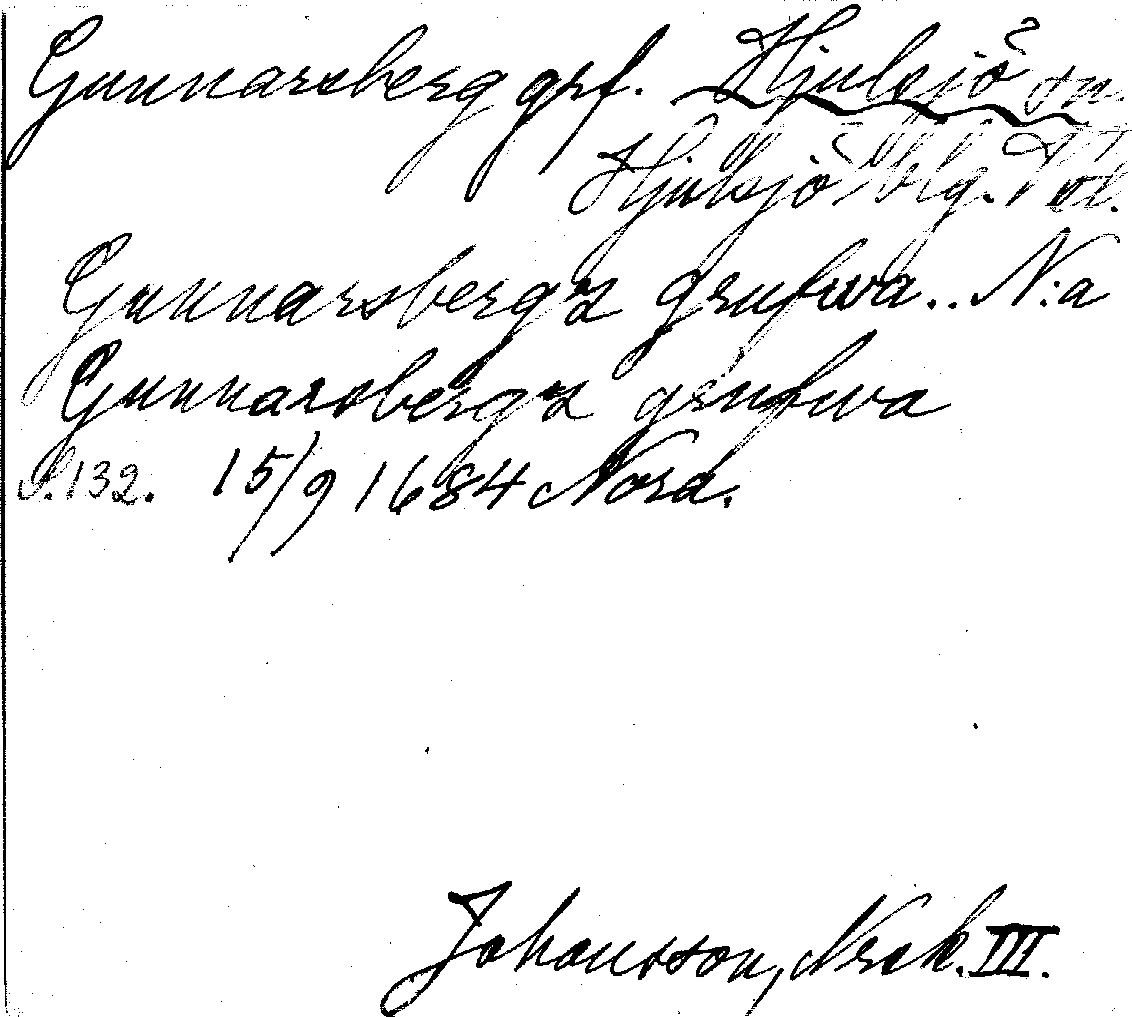 Gunnarsberg grf. Hjulsjö sn.
Hjulsjö blg. Vstl.
Gunnarsbergz grufwa.. N:a
Gunnarsbergz grufwa
S. 132. 15/9 1684 Nora.
Johansson, Norak. III.